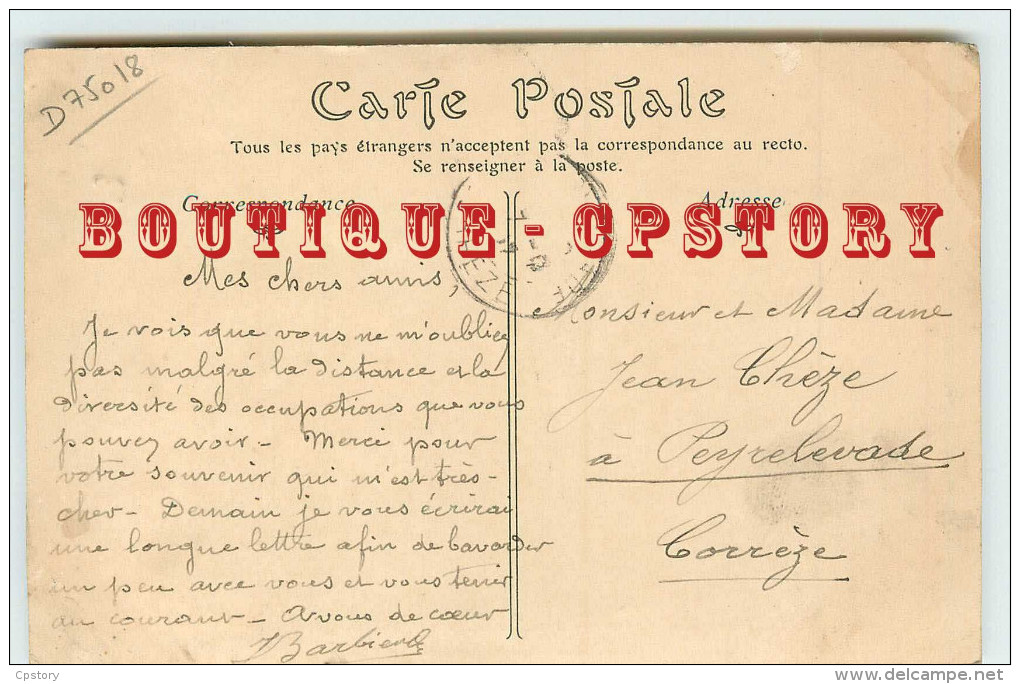 D75018
Carte Postale
Tous les pays étrangers n'acceptent pas la correspondance au recto.
Se renseigner à la poste.
Correspondance
Adresse
BOUTIQUE - CPSTORY
Mes chers amis,
Je vois que vous ne m'oubliez
pas malgré la distance et la
diversité des occupations que vous
pouvez avoir - Merci pour
votre souvenir qui m'est très-
cher - Demain je vous écrirai
une longue lettre afin de bavarder
un peu avec vous et vous tenir
au courant - A vous de cœur
Monsieur et Madame
Jean Chèze
à Peyrelevade
Corrèze
Cpstory
delcampe.net